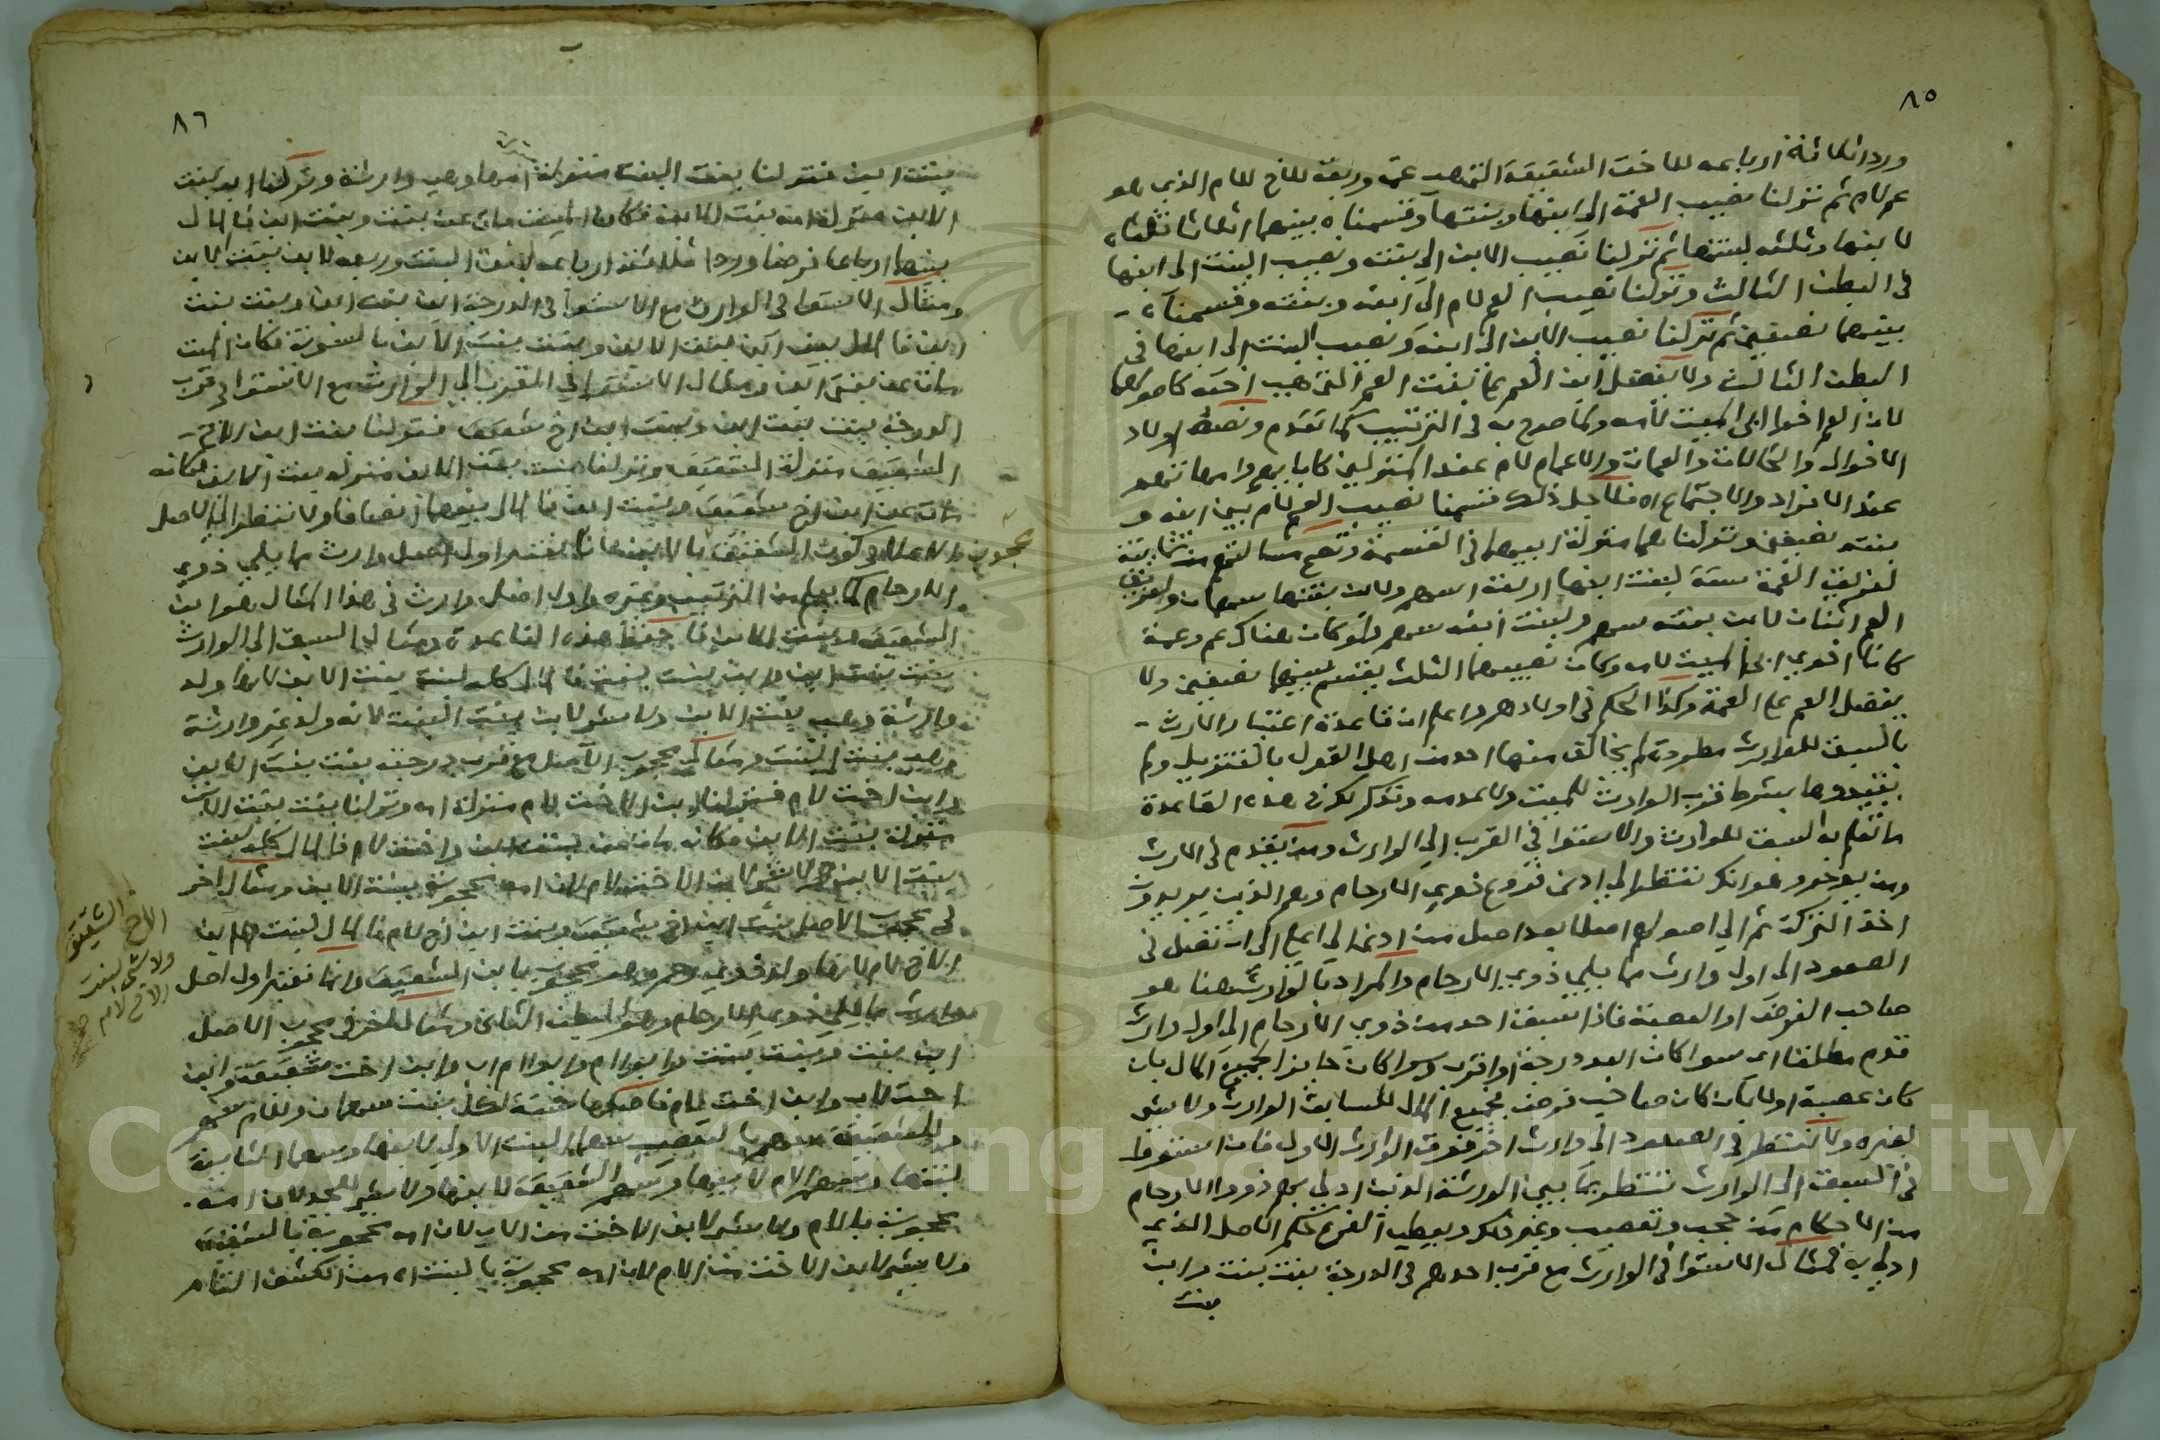 ٨٥
وردا ثلاثة ارباعه للاخت الشقيقة التي هي عمة وربعه للاخ للام الذي هو
عم لام ثم نزلنا نصيب العمة الى ابنها وبنتها وقسمناه بينهما اثلاثا ثلثاه
لابنها وثلثه لبنتها ثم نزلنا نصيب الابن الى بنته ونصيب البنت الى ابنها
في البطن الثالث ونزلنا نصيب العم لام الى ابنه وبنته وقسمناه
بينهما نصفين ثم نزلنا نصيب الابن الى ابنه ونصيب البنت الى ابنها في
البطن الثالث ولا يفضل ابن العم على بنت العم التي هي اخته كاصولها
لان العم اخوا ابي الميت لامه وكما صرح به في الترتيب كما تقدم ونصه اولاد
الاخوال والخالات والعمات والاعمام لام عند المنزلين كابائهم وامهاتهم
عند الانفراد والاجتماع اه فلاجل ذلك قسمنا نصيب العم لام بين ابنه و
بنته نصفين ونزلناهما منزلة ابيهما في القسمة وتصح مسالتهم من ثمانية
لفريق العمة ستة لبنت ابنها اربعة اسهم ولابن بنتها سهمان ولفريق
العم اثنان لابن بنته سهم ولبنت ابنه سهم ولو كان هناك عم وعمة
كانا اخوي ابي الميت لامه وكان نصيبهما الثلث يقتسم بينهما نصفين ولا
يفضل العم على العمة وكذا الحكم في اولادهم واعلم ان قاعدة اعتبار الارث
بالسبق للوارث مطردة لم يخالف منها احد من اهل القول بالتنزيل ولم
يقيدوها بشرط قرب الوارث للميت ولا عدمه ونذكر لك في هذه القاعدة
ما تعلم به السبق للوارث والاستوا في القرب الى الوارث ومن يقدم في الارث
ومن يوخر وهو انك تنظر الى ادنى فروع ذوي الارحام وهم الذين يريدون
اخذ التركة ثم الى اصولهم اصلا بعد اصل من ادنى الى اعلى الى ان تصل في
الصعود الى اول وارث مما يلي ذوي الارحام والمراد بالوارث هنا هو
صاحب الفرض او العصبة فاذا سبق احد من ذوي الارحام الى اول وارث
قدم مطلقا اي سوا كان ابعد درجة او اقرب وسوا كان حايزا لجميع المال بان
كان عصبة اولا بان كان صاحب فرض فجميع المال للسابق الوارث ولا شي
لغيره ولا تنظر في الصعود الى وارث اخر فوق الوارث الاول فان استووا
في السبق الى الوارث تنظر بما بين الورثة الذين ادلي بهم ذووا الارحام
من الاحكام من حجب وتعصيب وغير ذلك ويعطى الفرع حكم الاصل الذي
ادلي به فمثال الاستوا في الوارث مع قرب احدهم في الدرجة بنت بنت وابن
بنت
٨٦
بنت ابن فنزلنا بنت البنت منزلة امها وهي وارثة ونزلنا ابن بنت
الابن منزلة امه بنت الابن فكان الميت مات عن بنت وبنت ابن فالمال
بينهما ارباعا فرضا وردا ثلاثة ارباعه لبنت البنت وربعه لابن بنت الابن
ومثال الاستوا في الوارث مع الاستوا في الدرجة ابن بنت ابن وبنت بنت
ابن فالمال بين ابن بنت الابن وبنت بنت الابن بالسوية فكان الميت
مات عن بنتي ابن ومثال الاستوا في القرب الى الوارث مع الاستوا في قرب
الدرجة بنت بنت ابن وبنت ابن اخ شقيق فنزلنا بنت ابن الاخ
الشقيق منزلة الشقيق ونزلنا بنت بنت الابن منزلة بنت الابن فكانه
مات عن ابن اخ شقيق وبنت ابن فالمال بينهما انصافا ولا تنظر الى الاصل
الاعلى في كون الشقيق بالابن لاننا نعتبر اول اصل وارث مما يلي ذوي
محجوب
الارحام كما يعلم من الترتيب وغيره واول اصل وارث في هذا المثال هو ابن
الشقيق وبنت الابن فاحفظ هذه القاعدة ومثال السبق الى الوارث
بنت بنت ابن وابن بنت بنت فالمال كله لبنت بنت الابن لانها ولد
وارثة وهي بنت الابن ولا شي لابن بنت البنت لانه ولد غير وارثة
وهي بنت البنت ومثال محجوب الاصل مع قرب درجته بنت بنت الابن
وابن اخت لام فنزلنا ابن الاخت لام منزلة امه ونزلنا بنت بنت الابن
منزلة بنت الابن فكانه مات عن بنت ابن واخت لام فالمال كله لبنت
بنت الابن ولا شي لابن الاخت لام لان امه محجوبة ببنت الابن ومثال اخر
في محجوب الاصل بنت ابن اخ شقيق وبنت ابن اخ لام فالمال لبنت ابن
الاخ الشقيق
ولا شي لبنت
الاخ لام صح
الاخ لام لانها ولد ذوي رحم وهو محجوب بابن الشقيق وانما نعتبر اول اصل
وارث مما يلي ذوي الارحام وهو البطن الثاني ومثال اخر في محجوب الاصل
ابن بنت وبنت بنت وابو ام وابو ام اب وابن اخت شقيقة وابن
اخت لاب وابن اخت لام فاصلها ستة لكل بنت سهمان وللام سهم
وللشقيقة سهم بالتعصيب سهما البنت الاولى لابنها وسهما الثانية
لبنتها وسهم الام لابيها وسهم الشقيقة لابنها ولا شي للجد لان امه
محجوبة بالام ولا شي لابن الاخت من الاب لان امه محجوبة بالشقيقة
ولا شي لابن الاخت من الام لان امه محجوبة بالبنت اه من الكشف التام
Copyright © King Saud University